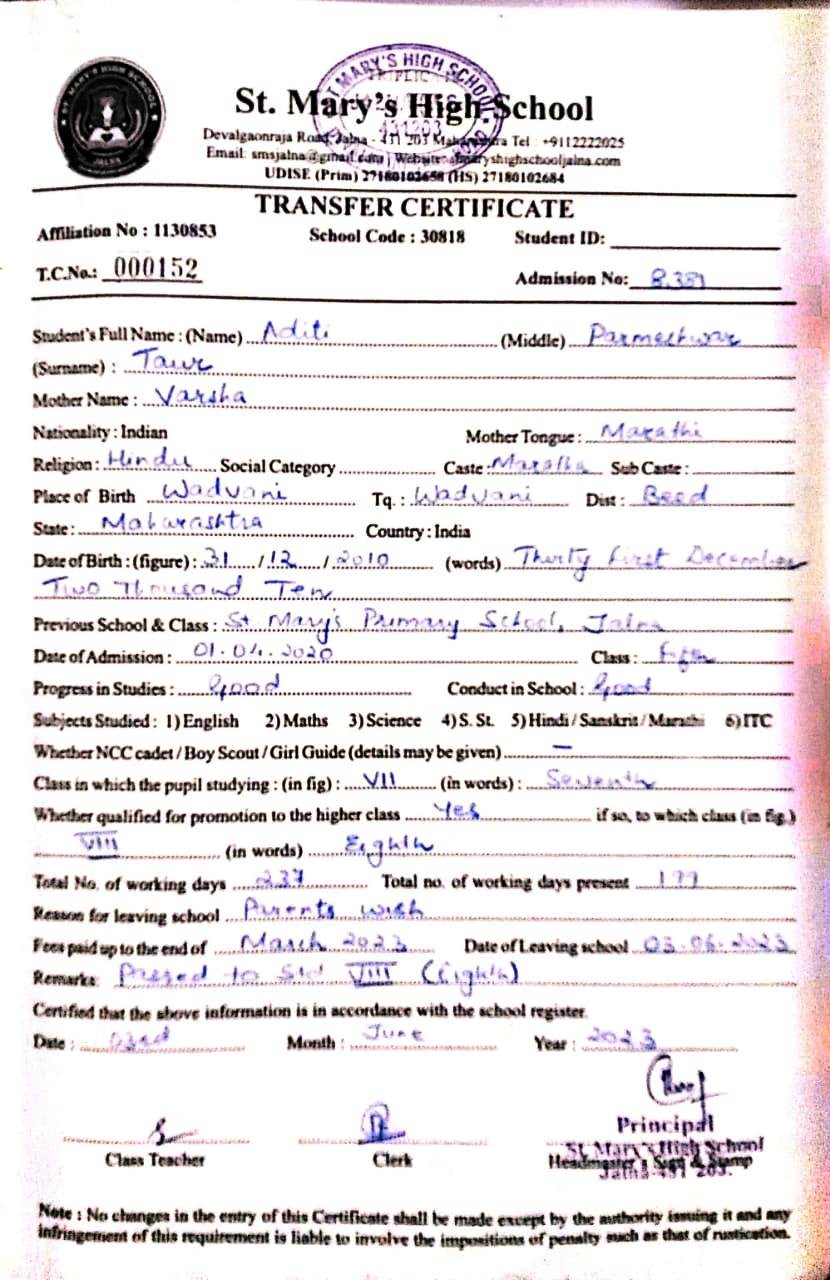 ST. MARY'S HIGH SCHOOL
JALNA
St. Mary's High School
Devalgaonraja Road, Jalna - 431 203 Maharashtra Tel : +9112222025
Email: smsjalna@gmail.com | Website: stmaryshighschooljalna.com
UDISE (Prim) 27180102658 (HS) 27180102684
TRANSFER CERTIFICATE
Affiliation No : 1130853 School Code : 30818 Student ID:
T.C.No.: 000152 Admission No: 8.389
Student's Full Name : (Name) Aditi (Middle) Parmeshwar
(Surname) : Taur
Mother Name : Varsha
Nationality : Indian Mother Tongue : Marathi
Religion : Hindu Social Category Caste : Maratha Sub Caste :
Place of Birth Wadvani Tq. : Wadvani Dist : Beed
State : Maharashtra Country : India
Date of Birth : (figure) : 31 / 12 / 2010 (words) Thirty first December
Two Thousand Ten
Previous School & Class : St Mary's Primary School, Jalna
Date of Admission : 01.04.2020 Class : Fifth
Progress in Studies : Good Conduct in School : Good
Subjects Studied : 1) English 2) Maths 3) Science 4) S. St. 5) Hindi / Sanskrit / Marathi 6) ITC
Whether NCC cadet / Boy Scout / Girl Guide (details may be given) —
Class in which the pupil studying : (in fig) : VII (in words) : Seventh
Whether qualified for promotion to the higher class Yes if so, to which class (in fig.)
VIII (in words) Eighth
Total No. of working days 237 Total no. of working days present 199
Reason for leaving school Parents wish
Fees paid up to the end of March 2023 Date of Leaving school 03.06.2023
Remarks Passed to Std VIII (Eighth)
Certified that the above information is in accordance with the school register.
Date : 03rd Month : June Year : 2023
Principal
St. Mary's High School
Class Teacher Clerk Headmaster's Sign & Stamp
Jalna-431 203.
Note : No changes in the entry of this Certificate shall be made except by the authority issuing it and any
infringement of this requirement is liable to involve the impositions of penalty such as that of rustication.